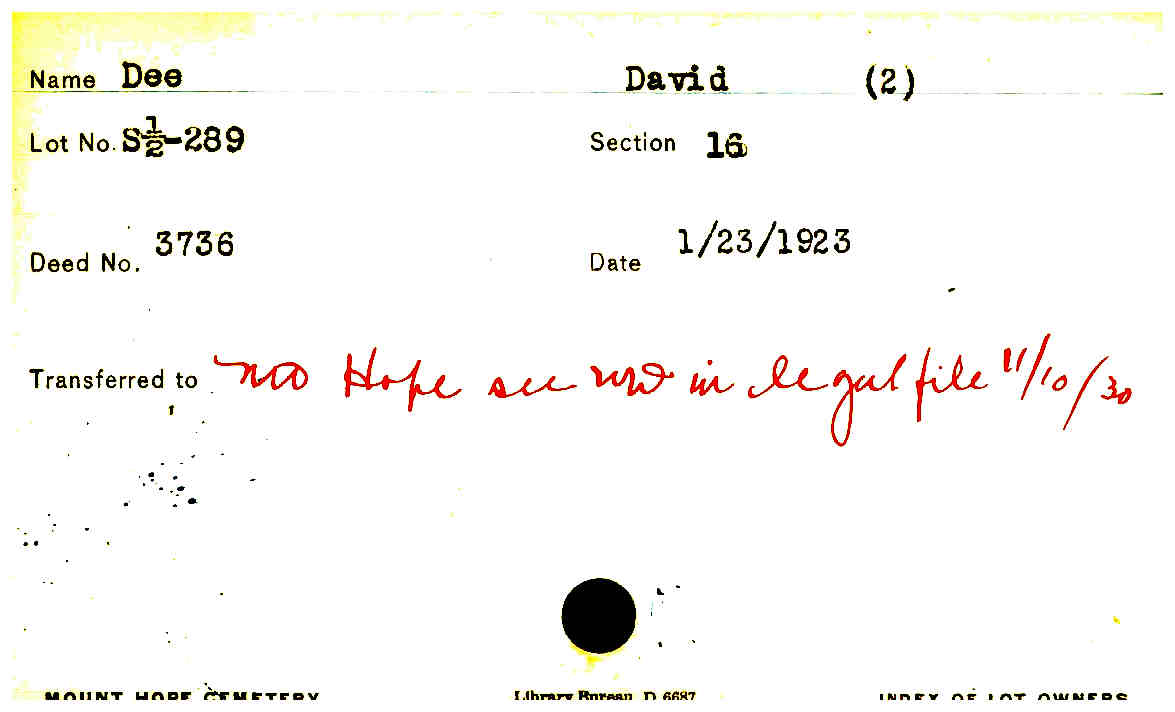 Name Dee David (2)
Lot No. S½-289 Section 16
Deed No. 3736 Date 1/23/1923
Transferred to Hope see in legal file 11/10/30
MOUNT HOPE CEMETERY Library Bureau D 6687 INDEX OF LOT OWNERS